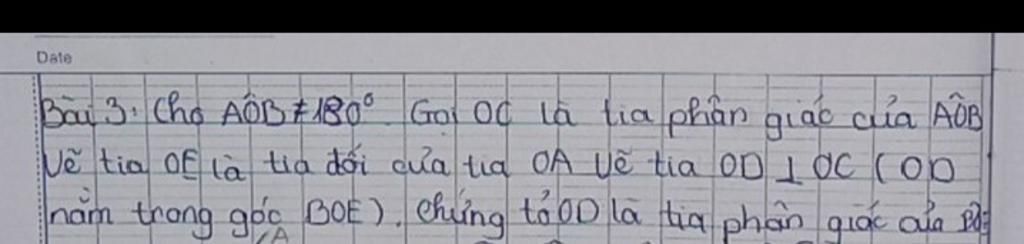 Date
Bài 3: Cho AÔB ≠ 180° Gọi OC là tia phân giác của AÔB
Vẽ tia OE là tia đối của tia OA Vẽ tia OD ⊥ OC (OD
nằm trong góc BOE). Chứng tỏ OD là tia phân giác của